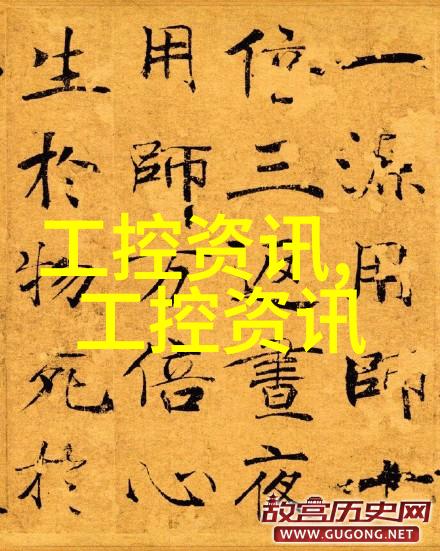 一源用師十
倍三反晝夜
用師万倍心
生於物死於
工控资讯,
工控资讯
故宫历史网
WWW.GUGONG.NET